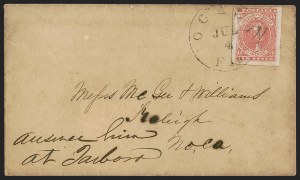 JUL
4
Messrs McGee & Williams
Raleigh
No. Ca.
answer him
at Tarboro